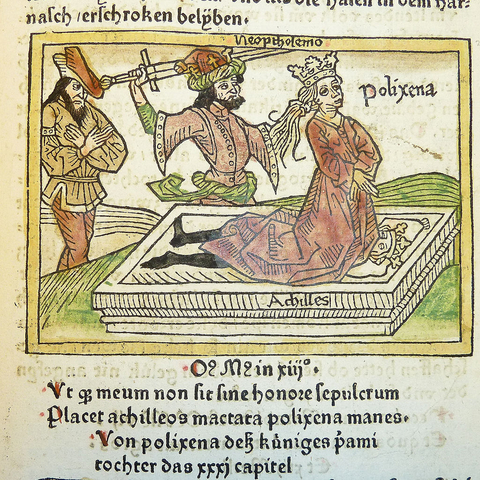 nasch /erschroken belyben.
Neoptholemo
Polixena
Achilles
Oꝛ Mꝛ in xiijº.
Vt qꝫ meum non sit sine honore sepulcrum
Placet achilleos mactata polixena manes.
Von polixena deß küniges p̄ami
tochter das xxxj capitel